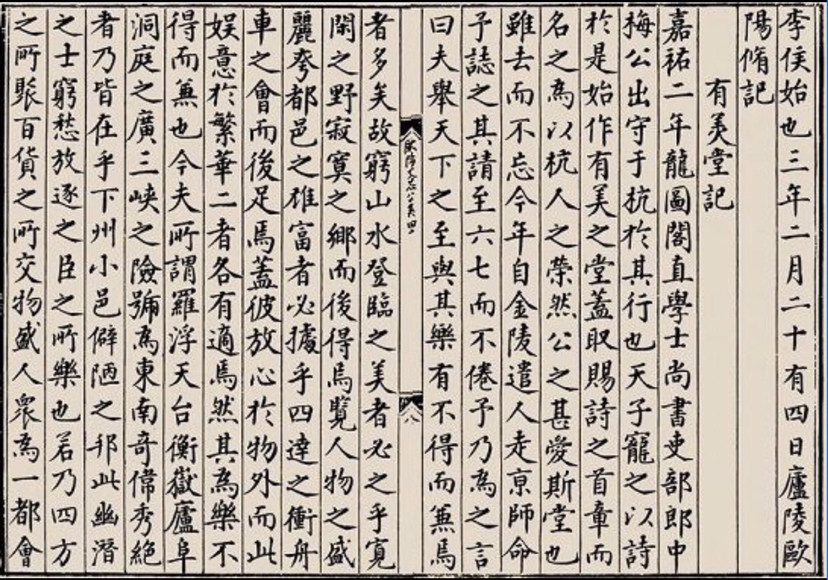 李侯始也三年二月二十有四日廬陵歐
陽脩記
有美堂記
嘉祐二年龍圖閣直學士尚書吏部郎中
梅公出守于杭於其行也天子寵之以詩
於是始作有美之堂蓋取賜詩之首章而
名之為以杭人之榮然公之甚愛斯堂也
雖去而不忘今年自金陵遣人走亰師命
予誌之其請至六七而不倦予乃為之言
曰夫舉天下之至與其樂有不得而兼焉
八
者多矣故窮山水登臨之美者必之乎寬
閑之野寂寞之鄉而後得焉覽人物之盛
麗夸都邑之雄富者必據乎四達之衝舟
車之會而後足焉蓋彼放心於物外而此
娛意於繁華二者各有適焉然其為樂不
得而兼也今夫所謂羅浮天台衡嶽廬阜
洞庭之廣三峽之險號為東南奇偉秀絕
者乃皆在乎下州小邑僻陋之邦此幽潛
之士窮愁放逐之臣之所樂也若乃四方
之所聚百貨之所交物盛人衆為一都會